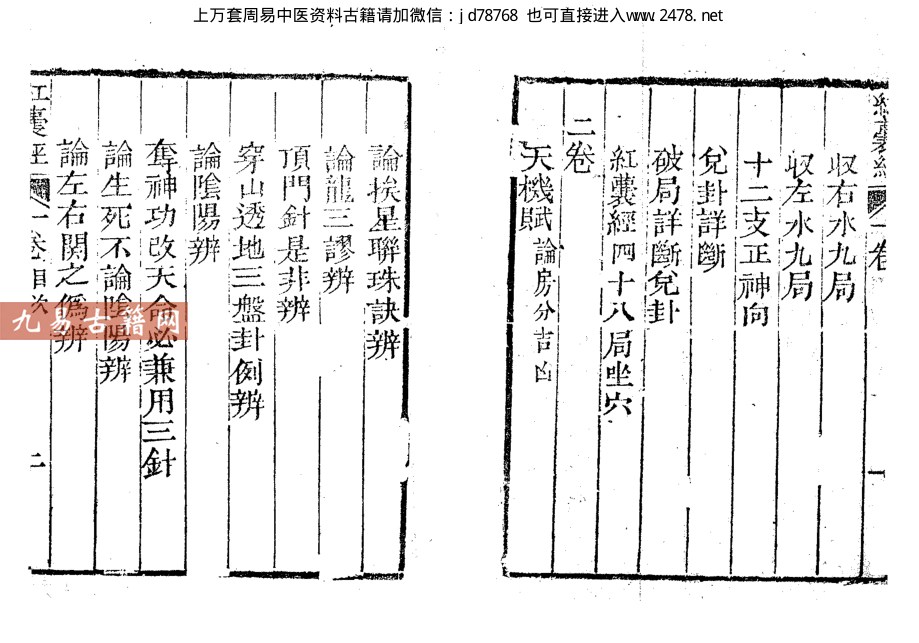 上万套周易中医资料古籍请加微信：jd78768 也可直接进入www.2478.net
收右水九局
収左水九局
十二支正神向
兌卦詳斷
破局詳斷兌卦
紅囊經四十八局坐穴
二卷
天機賦 論房分吉凶
論挨星聯珠訣辨
論龍三謬辨
頂門針是非辨
穿山透地三盤卦例辨
論陰陽辨
奪神功改天命必兼用三針
論生死不論陰陽辨
論左右関之偽辨
紅囊經 一卷目次 二
九易古籍网